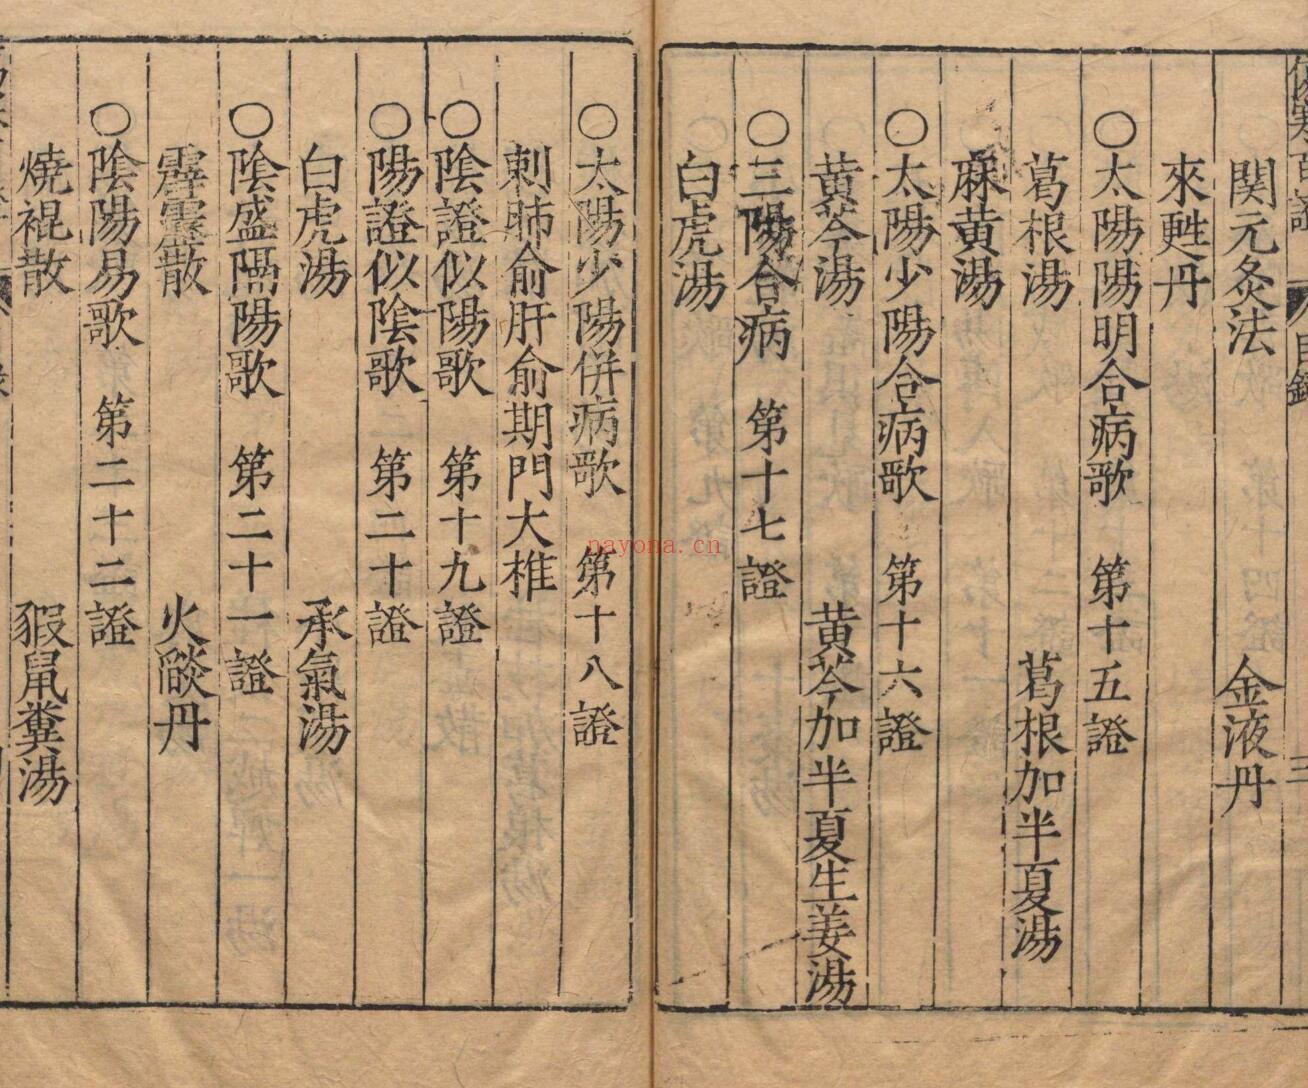 関元灸法　金液丹
來甦丹
○太陽陽明合病歌　第十五證
葛根湯　葛根加半夏湯
麻黄湯
○太陽少陽合病歌　第十六證
黄芩湯　黄芩加半夏生姜湯
○三陽合病　第十七證
白虎湯
○太陽少陽併病歌　第十八證
刺肺俞肝俞期門大椎
○陰證似陽歌　第十九證
○陽證似陰歌　第二十證
白虎湯　承氣湯
○陰盛隔陽歌　第二十一證
霹靂散　火燄丹
○陰陽易歌　第二十二證
燒裩散　猳鼠糞湯
nayona.cn